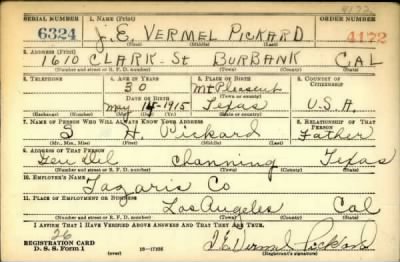 4172
SERIAL NUMBER 1. NAME (Print) ORDER NUMBER
6324 J. E. VERMEL PICKARD 4172
(First) (Middle) (Last)
2. ADDRESS (Print)
1610 CLARK-St BURBANK CAL
(Number and street or R. F. D. number) (Town) (County) (State)
3. TELEPHONE 4. AGE IN YEARS 5. PLACE OF BIRTH 6. COUNTRY OF CITIZENSHIP
30 Mt Pleasant
DATE OF BIRTH (Town or county)
May 14-1915 Texas U.S.A.
(Exchange) (Number) (Mo.) (Day) (Yr.) (State or country)
7. NAME OF PERSON WHO WILL ALWAYS KNOW YOUR ADDRESS 8. RELATIONSHIP OF THAT PERSON
H. Pickard Father
(Mr., Mrs., Miss) (First) (Middle) (Last)
9. ADDRESS OF THAT PERSON
Gen Del Channing Texas
(Number and street or R. F. D. number) (Town) (County) (State)
10. EMPLOYER'S NAME
Co
11. PLACE OF EMPLOYMENT OR BUSINESS
Los Angeles Cal
(Number and street or R. F. D. number) (Town) (County) (State)
I AFFIRM THAT I HAVE VERIFIED ABOVE ANSWERS AND THAT THEY ARE TRUE.
26
REGISTRATION CARD
D. S. S. Form 1 J. E. Vermel Pickard
(Registrant's signature)